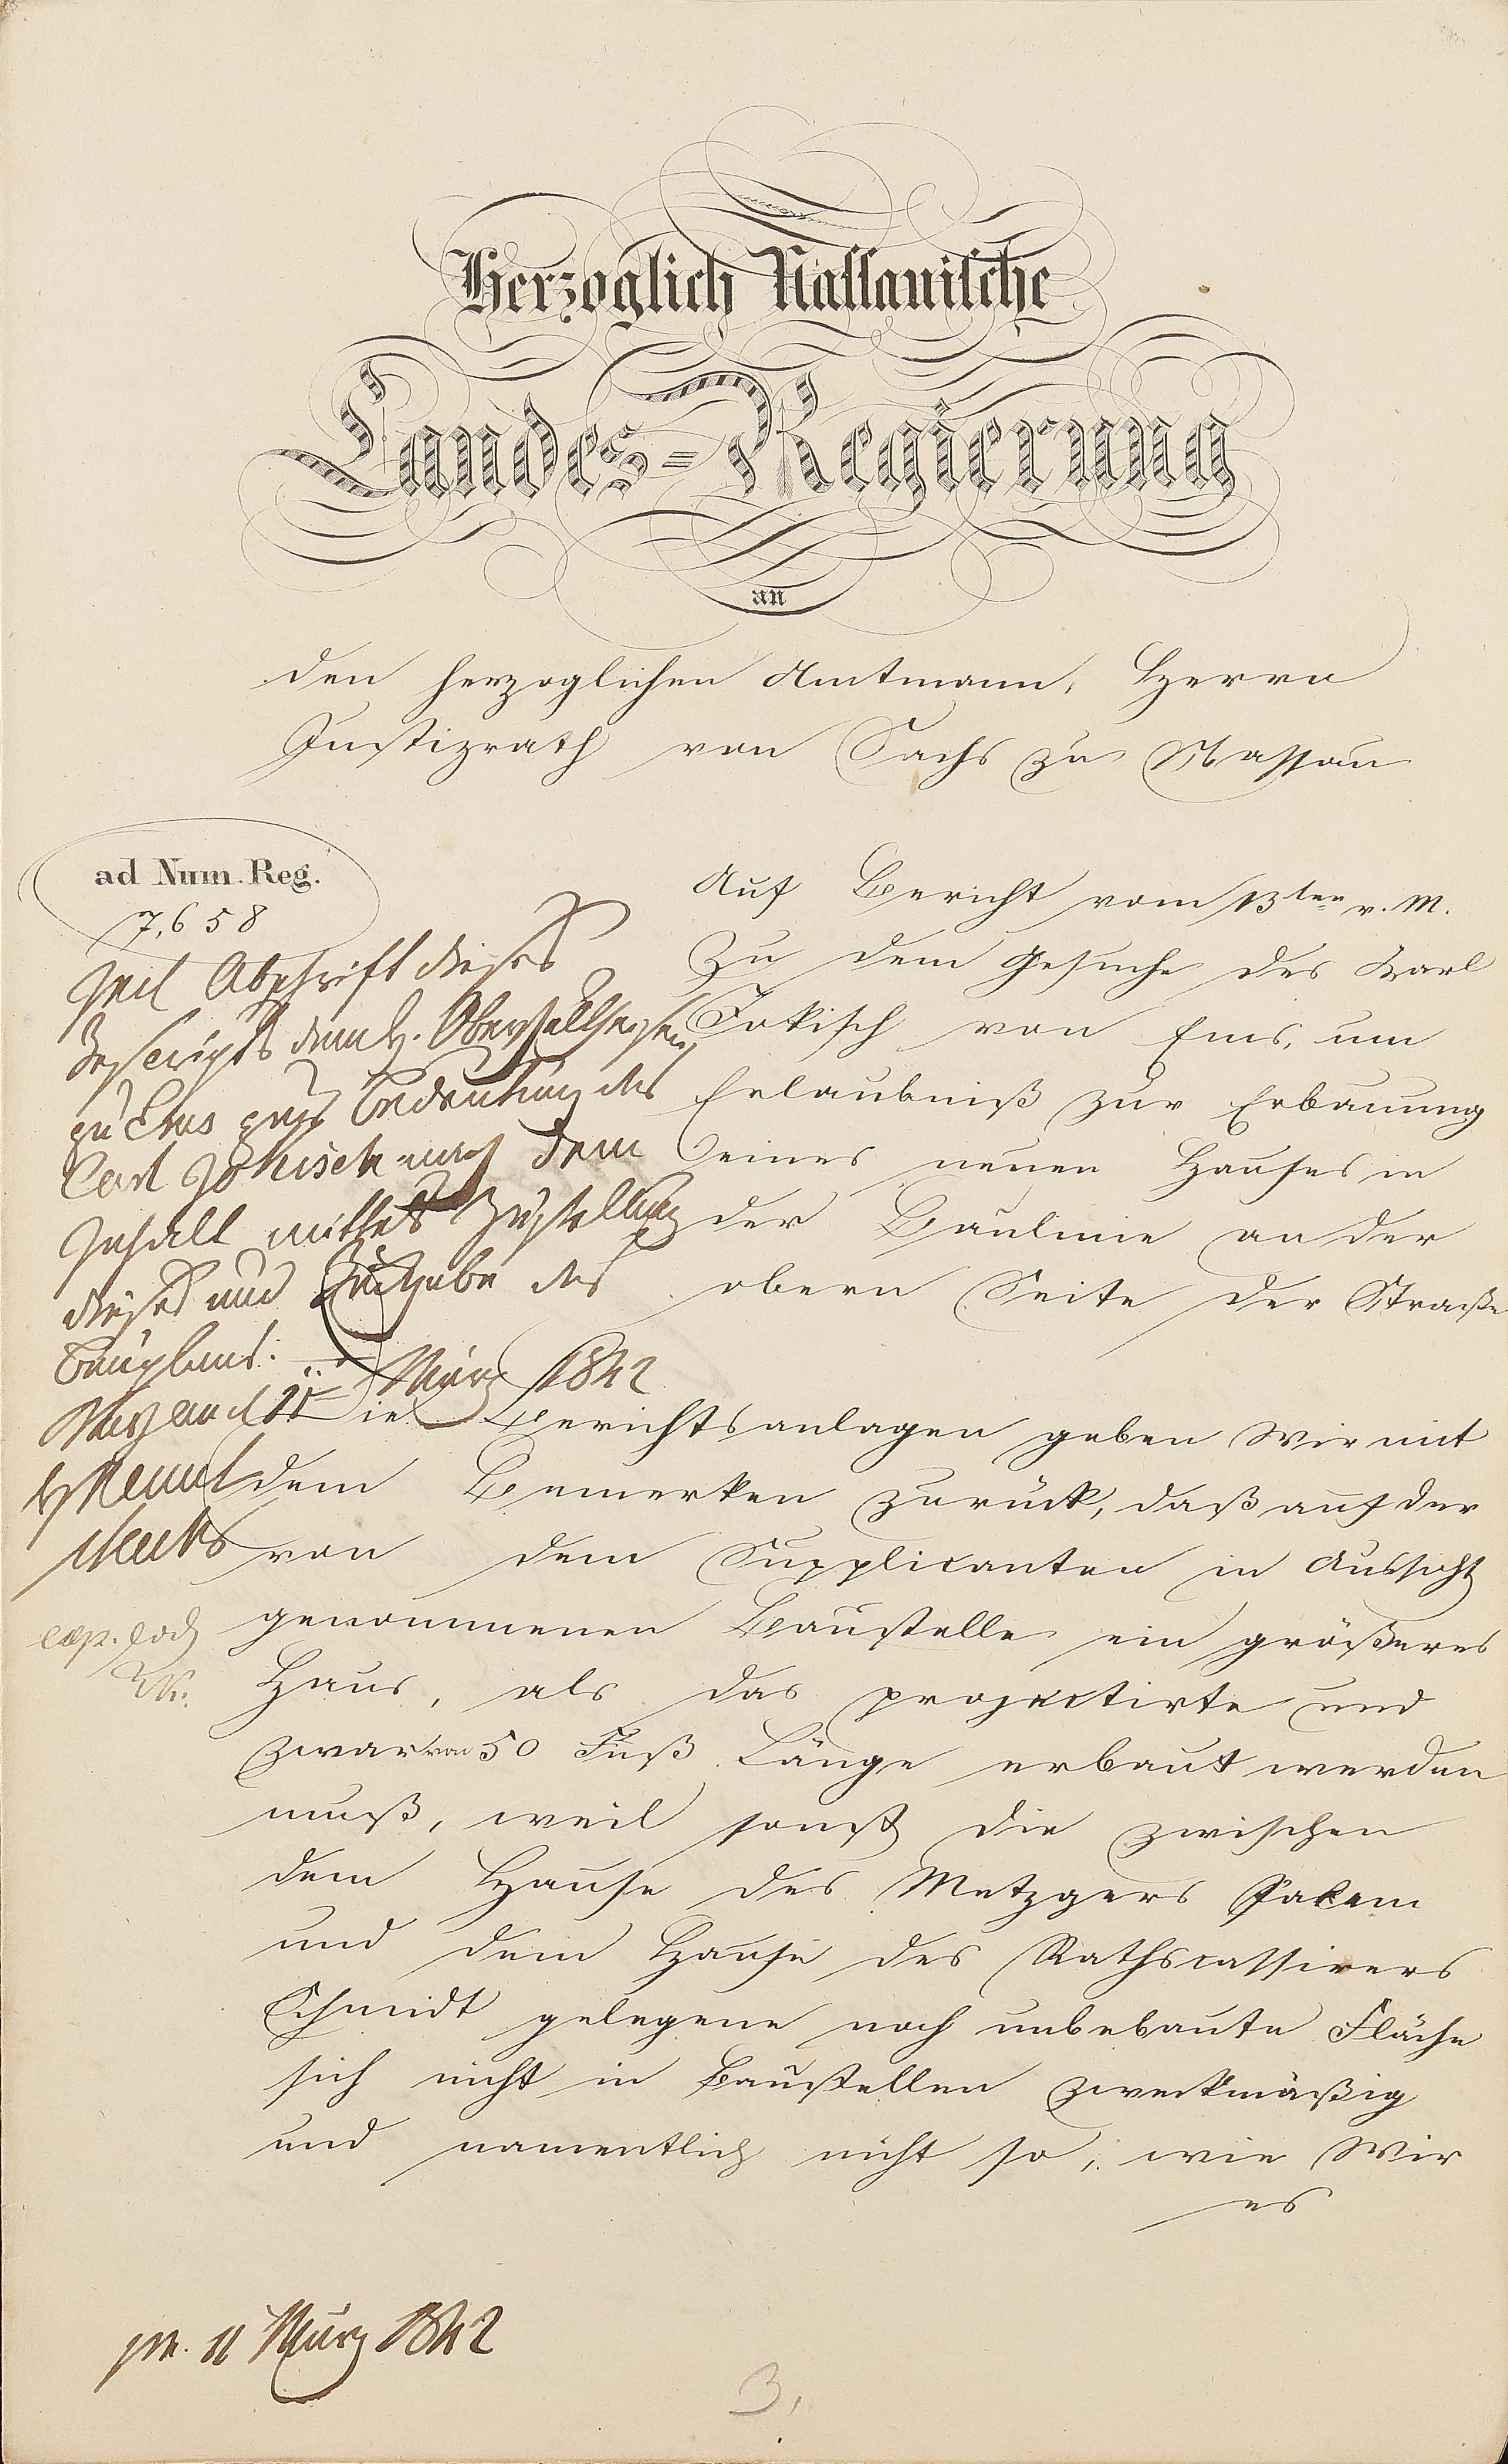 Herzoglich Nassauische
Landes-Regierung
an
den herzoglichen Amtmann, Herrn
Justizrath von Sachs zu Nassau
ad Num. Reg.
7,658
Auf Bericht vom 13ten v. M.
zu dem Gesuche des Karl
Jokisch von Ems, um
Erlaubniß zur Erbauung
eines neuen Hauses in
der Baulinie an der
obern Seite der Straße
Abschrift dieses
Rescripts dem H.
zu Ems zur Bedeutung des
Carl Jokisch nach dem
Inhalt mittelst Zustellung
dieses und Rückgabe des
Bauplans.
März 1842
Die Berichtsanlagen geben Wir mit
dem Bemerken zurück, daß auf der
von dem Supplicanten in Aussicht
genommenen Baustelle ein größeres
Haus, als das projectirte und
zwar von 50 Fuß Länge erbaut werden
muß, weil sonst die zwischen
dem Hause des Metzgers Salem
und dem Hause des Rathscassirers
Schmidt gelegene noch unbebaute Fläche
sich nicht in Baustellen zweckmäßig
und namentlich nicht so, wie Wir
es
pr. 11 März 1842
3.